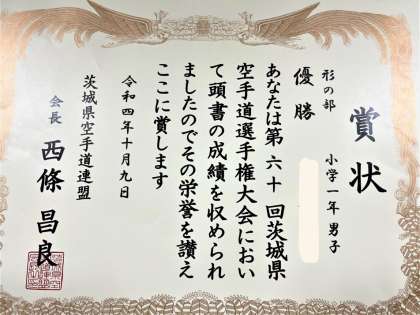 賞状
形の部 小学一年 男子
優勝
あなたは第六十回茨城県
空手道選手権大会におい
て頭書の成績を収められ
ましたのでその栄誉を讃え
ここに賞します
令和四年十月九日
茨城県空手道連盟
会長 西條昌良